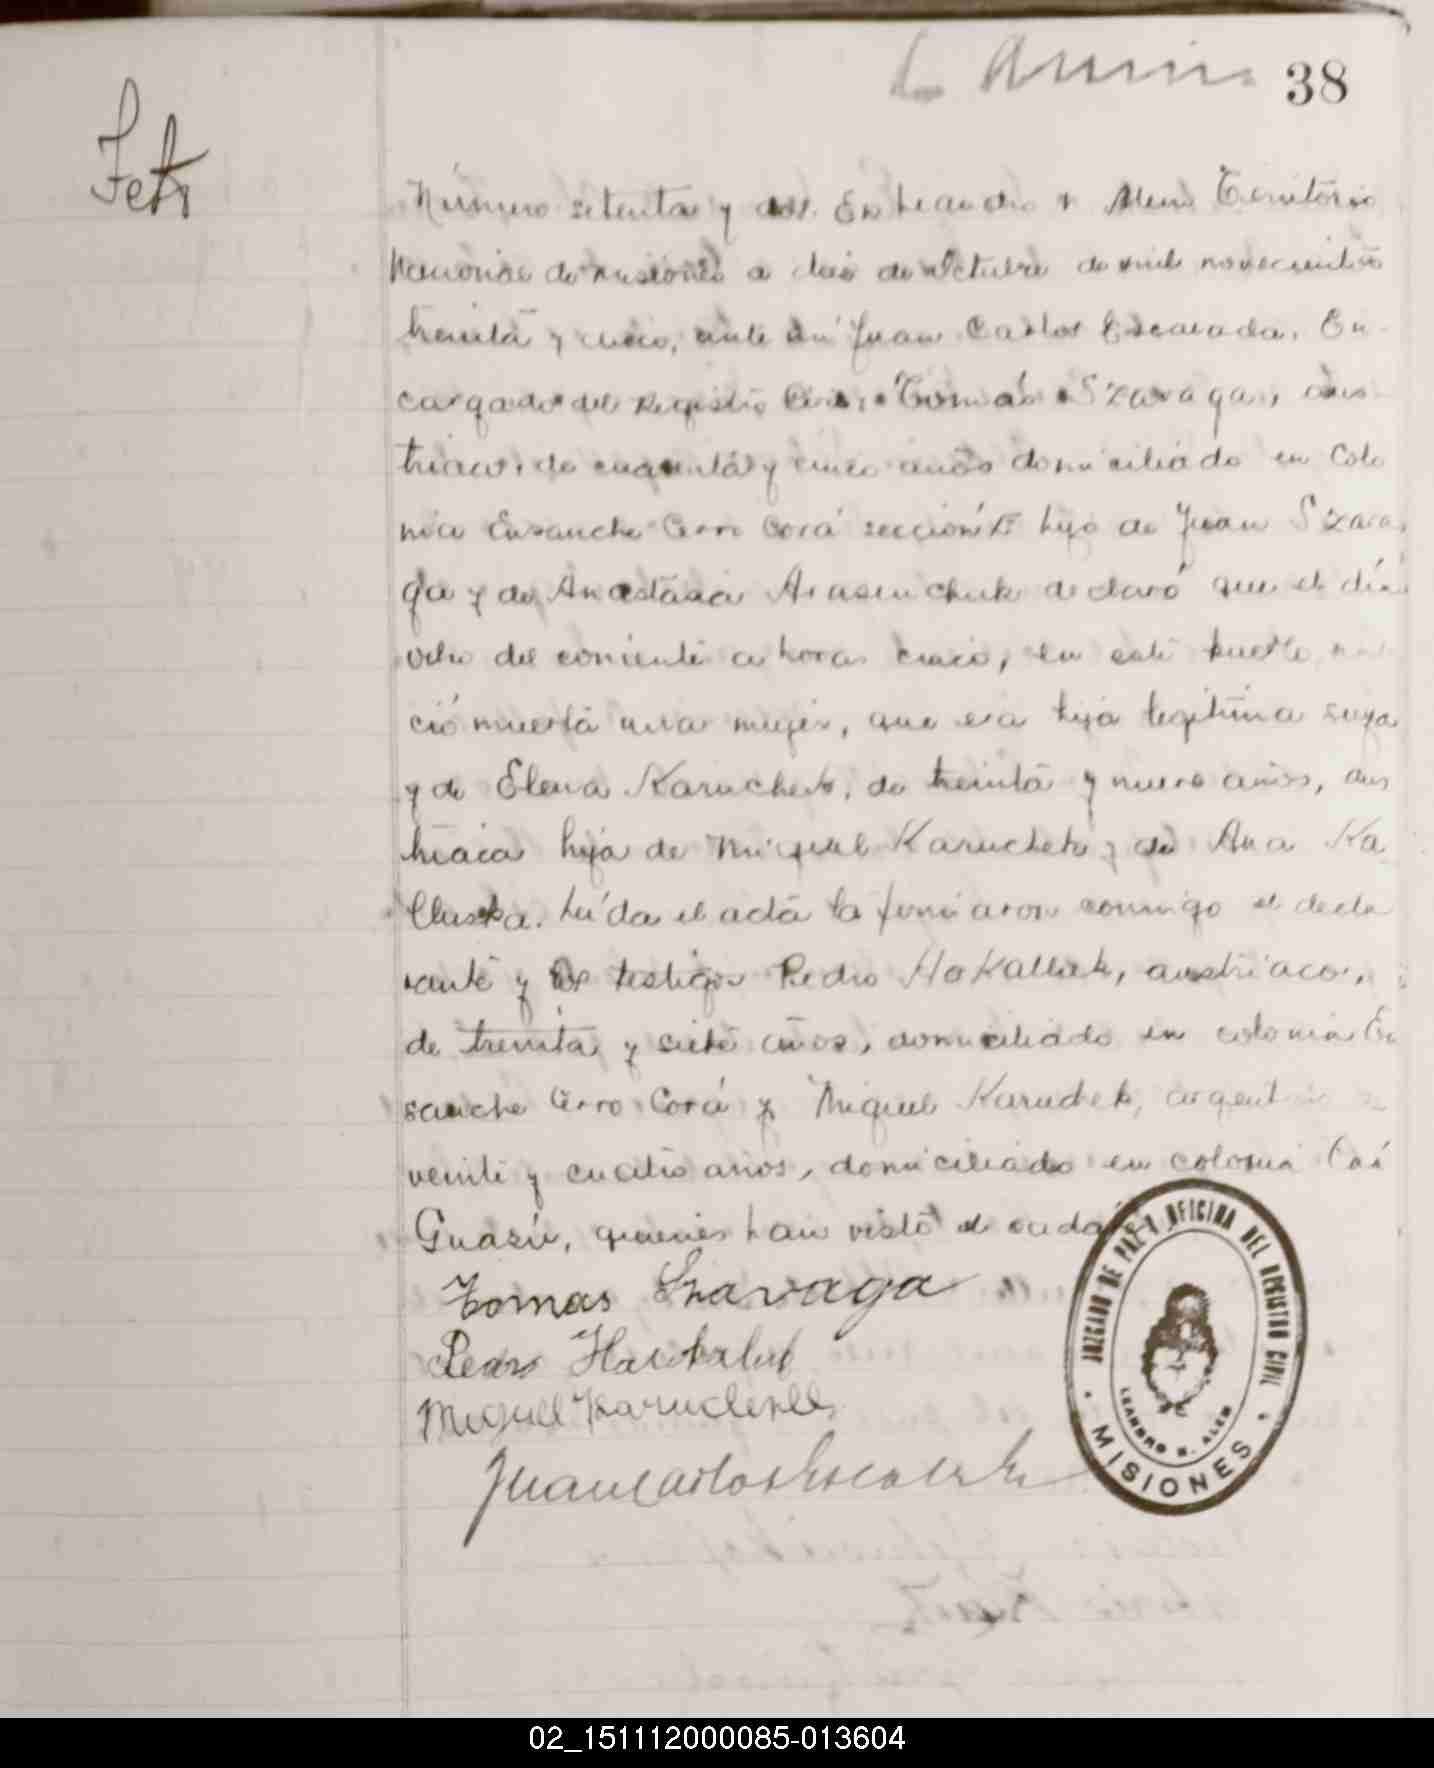 38
Feto
Número setenta y dos. En Leandro N Alem Territorio
Nacional de Misiones a diez de Octubre de mil novecientos
treinta y cinco, ante mí Juan Carlos Escalada, En-
cargado del Registro Civil, Tomás Szavaga, aus
triaco, de cuarenta y cinco años domiciliado en Colo
nia Ensanche Cerro Corá sección hijo de Juan Szava
ga y de Anastacia declaró que el día
ocho del corriente a horas cinco, en este pueblo, na
ció muerta una mujer, que era hija legítima suya
y de Elena Karuchek, de treinta y nueve años, aus
triaca hija de Miguel Karuchek y de Ana Ka
lluska. Leída el acta la firmaron conmigo el decla
rante y los testigos Pedro Hakalluk, austriaco,
de treinta y siete años, domiciliado en colonia En
sanche Cerro Corá y Miguel Karuchek, argentino de
veinte y cuatro años, domiciliado en colonia Caá
Guazú, quienes han visto el cadáver
Tomas Szavaga
Pedro
Miguel
Juan Carlos Escalada
JUZGADO DE PAZ Y OFICINA DEL REGISTRO CIVIL
LEANDRO N. ALEM
MISIONES
02_151112000085-013604